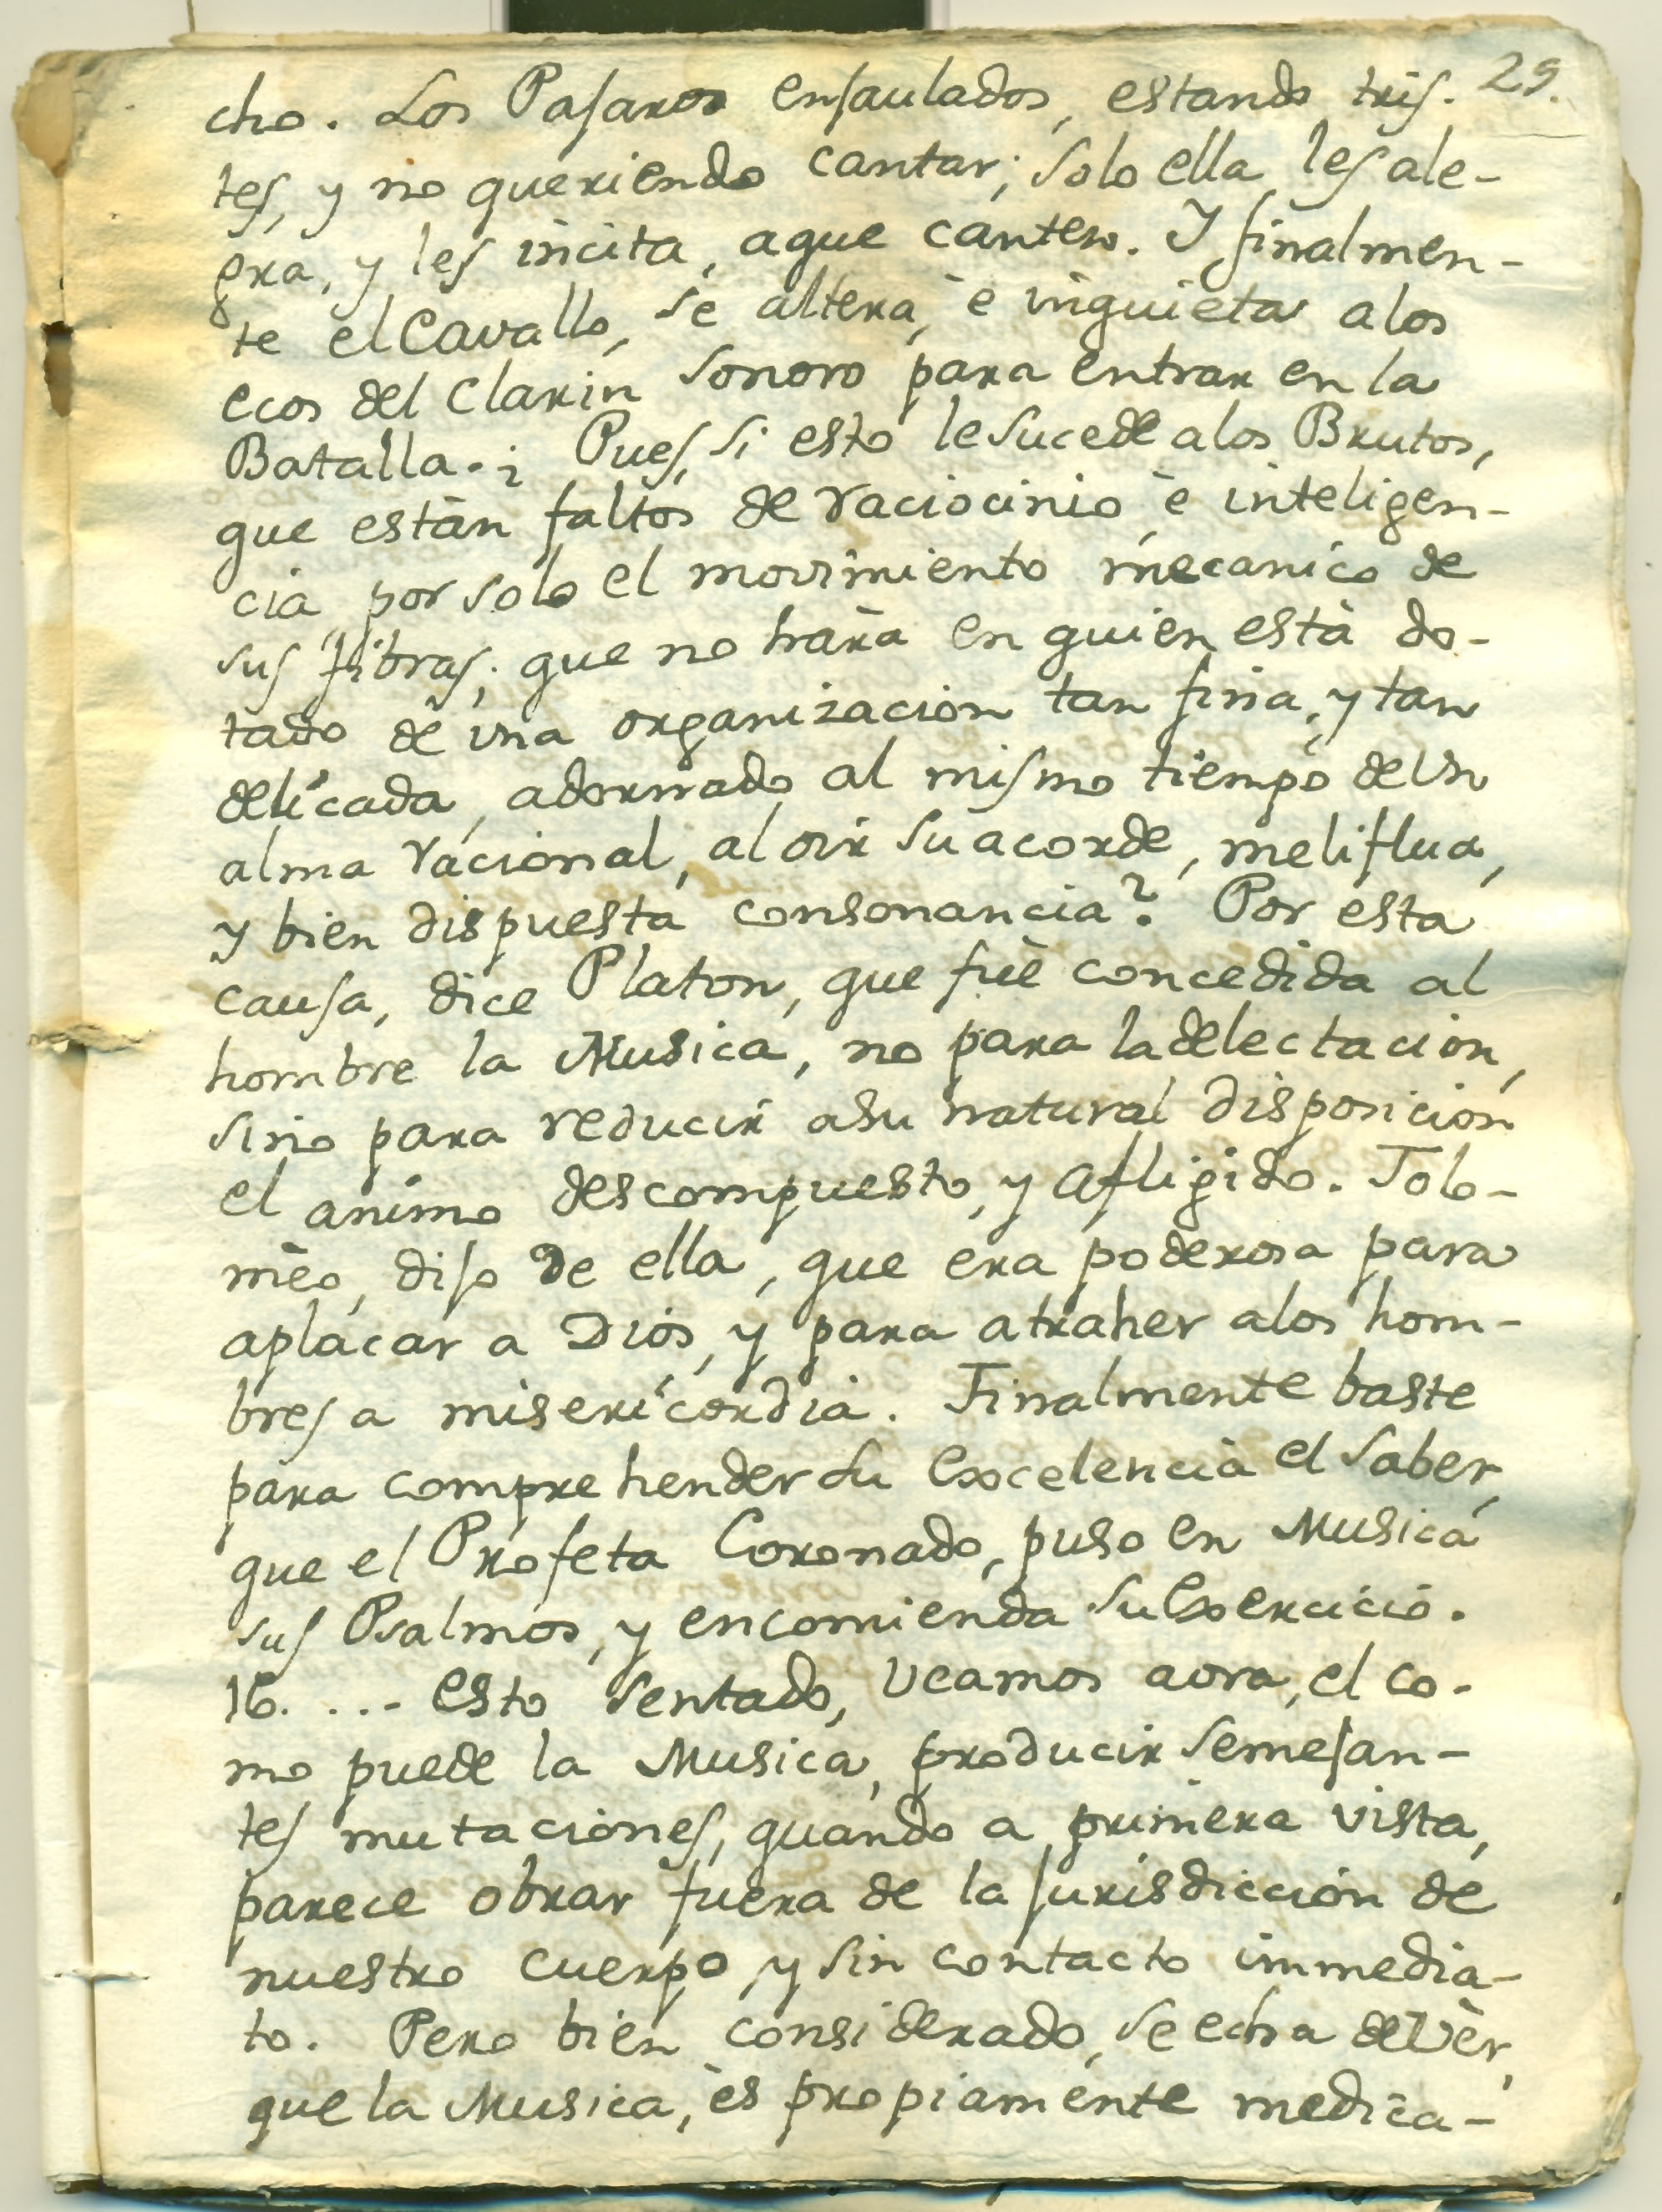 29.
cho. Los Pajaros enjaulados, estando tris-
tes, y no queriendo cantar; solo ella, les ale-
gra, y les incita, aque canten. Y finalmen-
te el Cavallo, se altera, è inquieta alos
ecos del Clarin sonoro para entrar en la
Batalla. ¿ Pues, si esto le sucede alos Brutos,
que estàn faltos de raciocinio è inteligen-
cia, por solo el movimiento mecanico de
sus fibras; que no harà en quien està do-
tado de una organizacion tan fina, y tan
delicada, adornado al mismo tiempo de Un
alma racional, al oir su acorde, meliflua,
y bien dispuesta consonancia? Por esta
causa, dice Platon, que fuè concedida al
hombre la Musica, no para la delectacion,
sino para reducir asu natural disposicion
el animo descompuesto, y afligido. Tolo-
mèo, dijo de ella, que era poderosa para
aplacar a Dios, y para atraher alos hom-
bres a misericordia. Finalmente baste
para comprehender su Excelencia el saber,
que el Profeta Coronado, puso en Musica
sus Psalmos, y encomienda su Exercicio.
16. ... Esto sentado, Veamos aora, el co-
mo puede la Musica, producir semejan-
tes mutaciones, quando a primera vista,
parece obrar fuera de la jurisdiccion de
nuestro cuerpo y sin contacto immedia-
to. Pero bien considerado, se echa de Vèr,
que la Musica, ès propiamente medica-